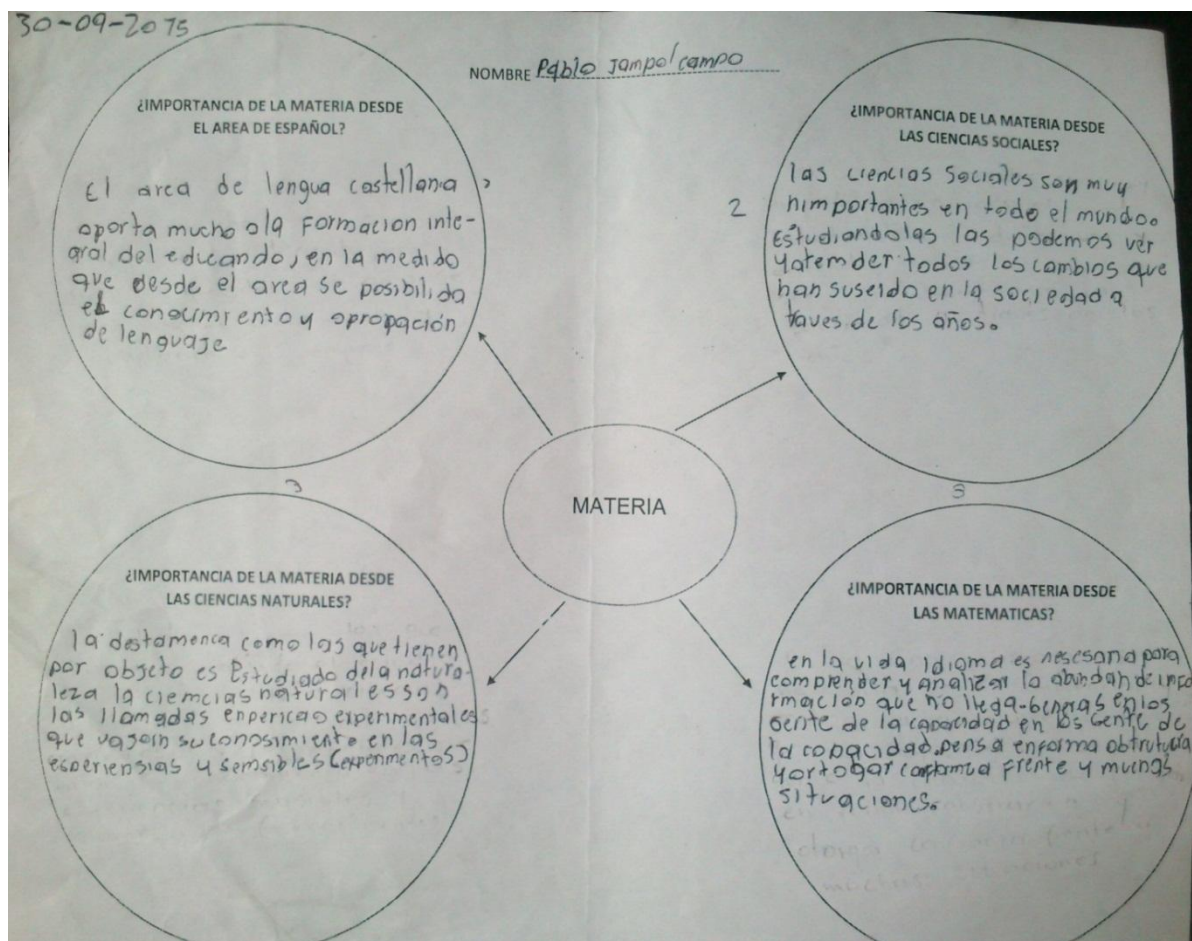 30-09-2015
NOMBRE Pablo Jampol campo
¿IMPORTANCIA DE LA MATERIA DESDE
EL AREA DE ESPAÑOL?
El area de lengua castellana,
aporta mucho ala Formacion inte-
gral del educando, en la medida
que desde el area se posibilida
el conocimiento y apropación
de lenguaje
¿IMPORTANCIA DE LA MATERIA DESDE
LAS CIENCIAS SOCIALES?
2
las ciencias Sociales son muy
himportantes en todo el mundo.
Estudiandolas las podemos ver
yatemder todos los cambios que
han suseido en la sociedad a
taves de los años.
MATERIA
3
¿IMPORTANCIA DE LA MATERIA DESDE
LAS CIENCIAS NATURALES?
la destamenca como las que tienen
por objeto es Estudiado dela natura-
leza la ciemcias naturales son
las llamadas enpericas experimentales
que vasain su conosimiento en las
esperiensias y semsibles (expenmentos)
¿IMPORTANCIA DE LA MATERIA DESDE
LAS MATEMATICAS?
en la vida idioma es nesesana para
comprender y analizar la abundan de info
rmación que no llega-beneras en los
Gente de la capacidad en los Gente de
la copacidad, pensa enforma obtrutucia
yortogar confamua frente y muchas
situaciones.